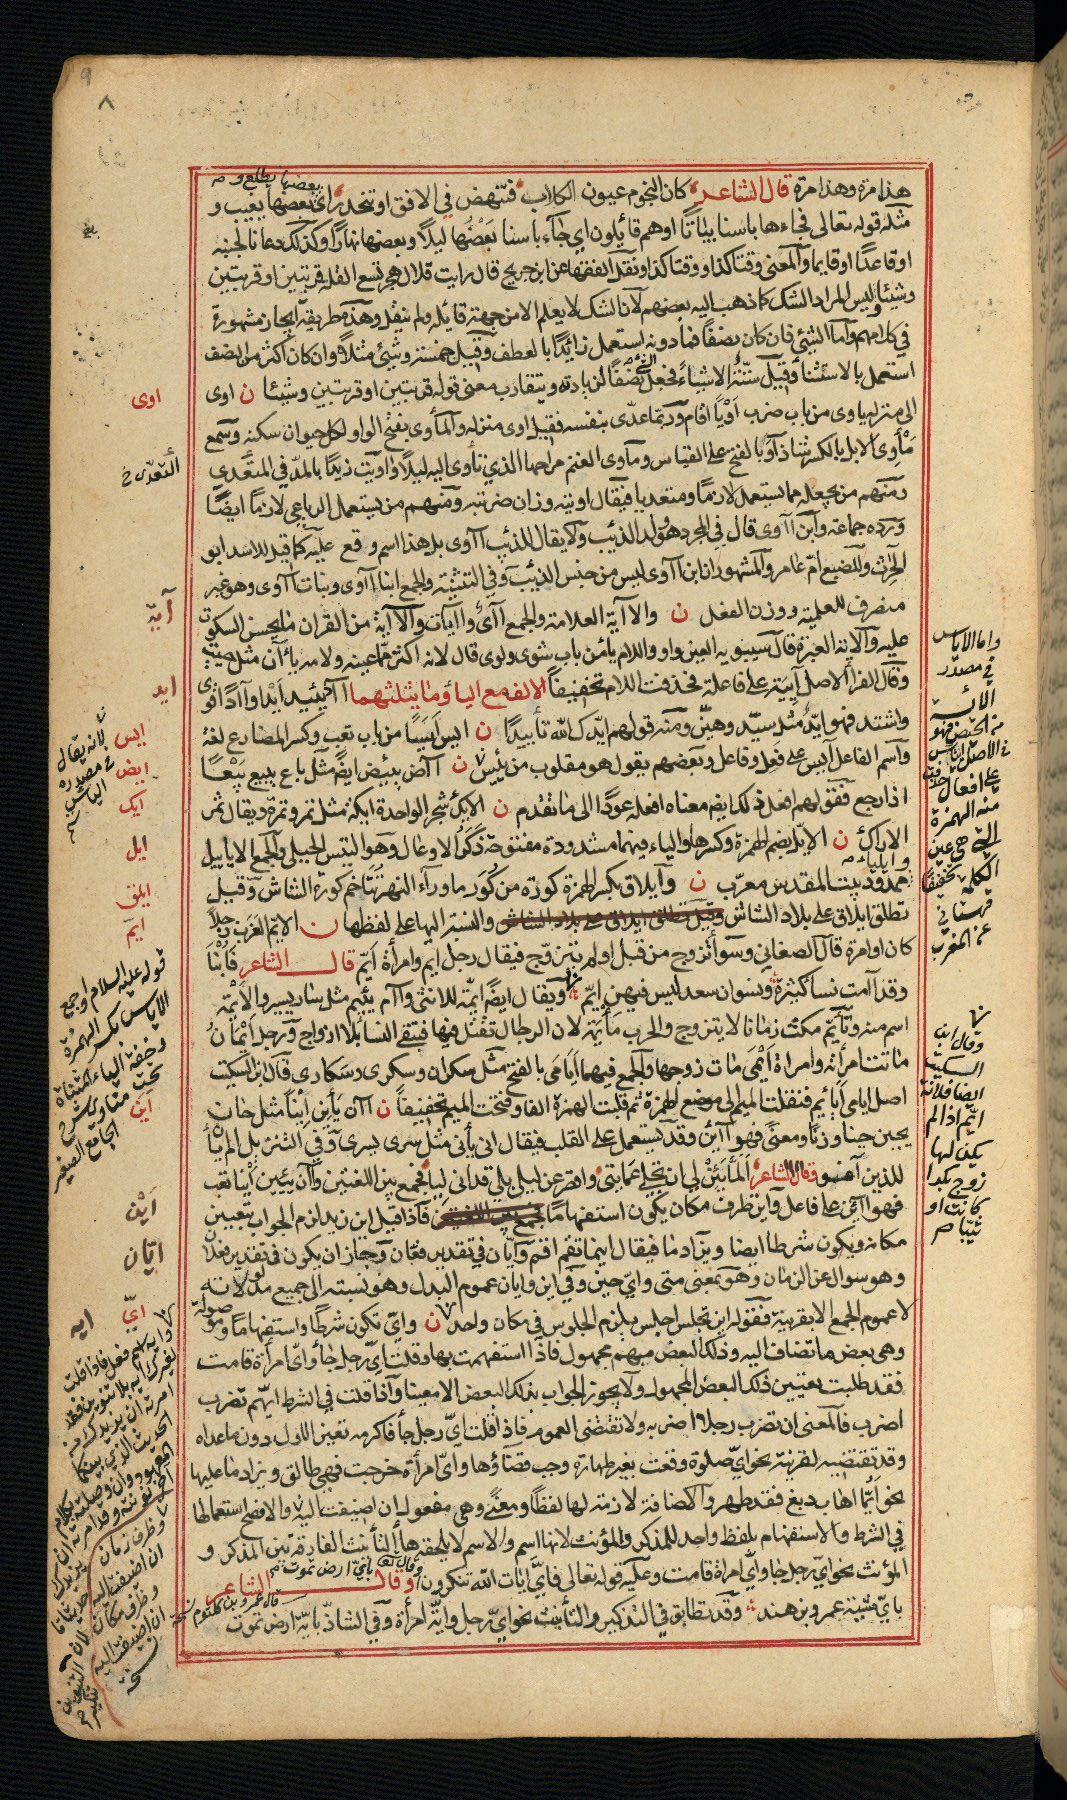 هذا مرة وهذا مرة قال الشاعر كان النجوم عيون الكلاب فتنهض في الافق او تنحدر اي بعضها يطلع وبعضها يغيب و
مثله قوله تعالى فجاءها باسنا بياتا او هم قائلون اي جاء باسنا بعضها ليلا وبعضها نهارا وكذلك دعانا لجنبه
او قاعدا او قايما والمعنى وقتا كذا ووقتا كذا ونقل الفقهاء عن ابن جريج قال رايت قلال هجر تسع القلة قربتين او قربتين
وشيئا وليس المراد الشك كما ذهب اليه بعضهم لان الشك لا يعلم الا من جهة قائله ولم ينقل وهذه طريقة ايجاز مشهورة
في كلامهم واما الشيئ فان كان نصفا فما دونه استعمل زائدا بالعطف وقيل خمسة وشيئ مثلا وان كان اكثر من النصف
استعمل بالاستثناء وقيل ستة الا شيئا فجعل الشئ نصفا لزيادته ويتقارب معنى قوله قربتين او قربتين وشيئا ن اوى
الى منزله ياوى من باب ضرب اويا اقام وربما عدّى بنفسه فقيل اوى منزله والمأوى بفتح الواو لكل حيوان سكنه وسمع
مأوى الابل بالكسر شاذ آو بالفتح على القياس ومأوى الغنم مراحها الذي تأوى اليه ليلا وآويت زيدا بالمدّ في المتعدي
ومنهم من يجعله مما يستعمل لازما ومتعديا فيقال اويته وزان ضربته ومنهم من يستعمل الرباعي لازما ايضا
ورده جماعة وابن آوى قال في المجرد هو ولد الذئب ولا يقال للذئب آوى بل هذا اسم وقع عليه كما قيل للاسد ابو
الحرث وللضبع ام عامر والمشهور ان ابن آوى ليس من جنس الذئب وفي التثنية والجمع ابنا آوى وبنات آوى وهو غير
منصرف للعلمية ووزن الفعل ن والآية العلامة والجمع آى وآيات والآية من القران ما يحسن السكوت
عليه والآية العبرة قال سيبويه العين واو واللام ياء من باب شوى ولوى قال لانه اكثر مما عينه ولامه ياءان مثل حييت
وقال الفراء الاصل آيية على فاعلة فحذفت اللام تخفيفا الالف مع الياء وما يثلثهما آد يئيد ايدا وآدا قوى
واشتد فهو ايد مثل سيد وهين ومنه قولهم ايدك الله تأييدا ن ايس ايسا من باب تعب وكسر المضارع لغة
واسم الفاعل آيس على فعل وفاعل وبعضهم يقول هو مقلوب من يئس ن آض يئيض ايضا مثل باع يبيع بيعا
اذا رجع فقولهم افعل ذلك ايضا معناه افعله عودا الى ما تقدم ن الايك شجر الواحدة ايكة مثل تمر وتمرة ويقال ثمر
الاراك ن الايّل بضم الهمزة وكسرها والياء فيهما مشددة مفتوحة ذكر الاوعال وهو التيس الجبلي والجمع الايايل
وايلياء ممدود بيت المقدس معرب ن وايلاق بكسر الهمزة كورة من كور ما وراء النهر تتاخم كورة الشاش وقيل
تطلق ايلاق على بلاد الشاش والنسبة اليها على لفظها ن الايّم العزب رجلا
كان او امرة قال الصغاني وسواء تزوج من قبل او لم يتزوج فيقال رجل ايم وامرأة ايم قال الشاعر فابنا
وقد آمت نسا كثيرة ونسوان سعد ليس فيهن ايم ويقال ايضا ايمة للانثى وآم يئيم مثل سار يسير والايمة
اسم منه وتأيم مكث زمانا لا يتزوج والحرب مأيمة لان الرجال تقتل فيها فتبقى النسا بلا ازواج ورجل ايمان
ماتت امرأته وامراة ايمى مات زوجها والجمع فيهما ايامى بالفتح مثل سكران وسكرى وسكارى قال ابن السكيت
اصل ايامى ايائم فنقلت الميم الى موضع الهمزة ثم قلبت الهمزة الفا وفتحت الميم تخفيفا ن آن يأين اينا مثل حان
يحين حينا وزنا ومعنى فهو آئن وقد يستعمل على القلب فيقال انى يأنى مثل سرى يسرى وفي التنزيل الم يأن
للذين آمنوا وقال الشاعر ألمّا يئن لي ان تجلى عمايتى واقصر عن ليلى بلى قد انى ليا فجمع بين اللغتين وآن يئين اينا تعب
فهو آئن على فاعل واين ظرف مكان يكون استفهاما فاذا قيل اين زيد لزم الجواب بتعيين
مكانه ويكون شرطا ايضا ويزاد ما فيقال اينما تقم اقم وايان في تقدير فعّان وجاز ان يكون في تقدير فعلان
وهو سوال عن الزمان وهو بمعنى متى واي حين وفي اين وايان عموم البدل وهو نسبته الى جميع مدلولاته
لا عموم الجمع الا بقرينة فقوله اين تجلس اجلس يلزم الجلوس في مكان واحد ن واي تكون شرطا واستفهاما وموصولة
وهي بعض ما تضاف اليه وذلك البعض مبهم مجهول فاذا استفهمت بها وقلت ايّ رجل جاء وايّ امرأة قامت
فقد طلبت تعيين ذلك البعض المجهول ولا يجوز الجواب بذلك البعض الا معينا واذا قلت في الشرط ايّهم تضرب
اضرب فالمعنى ان تضرب رجلا اضربه ولا تقتضى العموم فاذا قلت ايّ رجل جاء فاكرمه تعين الاول دون ما عداه
وقد تقتضيه لقرينة نحو ايّ صلوة وقعت بغير طهارة وجب قضاؤها وايّ امرأة خرجت فهي طالق ويزاد ما عليها
نحو ايّما اهاب دبغ فقد طهر والاضافة لازمة لها لفظا ومعنى وهي مفعول ان اضيفت اليه والافصح استعمالها
في الشرط والاستفهام بلفظ واحد للمذكر والمؤنث لانها اسم والاسم لا يلحقه هاء التأنيث الفارقة بين المذكر و
المؤنث نحو ايّ رجل جاء وايّ امرأة قامت وعليه قوله تعالى فايّ آيات الله تنكرون وقال تعالى باي ارض تموت وقال الشاعر
بايّ مشيئة عمرو بن هند وقد تطابق في التذكير والتأنيث نحو ايّ رجل وايّة امرأة وفي الشاذ بايّة ارض تموت
قال عمرو بن كلثوم نسخة
اوى
التعدّى
آية
ايد
ايس
ايض
ايك
ايل
ايلق
ايم
اين
اَيْن
ايّان
ايّ
ايه
لانه يقال
في مصدره
الياس
قوله عليه السلام اوجع
الاياس بكسر الهمزة
وخفة الياء المثناة
تحت مناوى شرح
الجامع الصغير
واما الاياس
في مصدر
الائسة
من الحيض فهو
في الاصل ائياس
على افعال حذفت
منه الهمزة
التي هي عين
الكلمة تخفيفا
قهستاني
عن المغرب
وقال ابن
السكيت
ايضا فلانة
ايّم اذا لم
يكن لها
زوج بكرا
كانت او
ثيبا صح